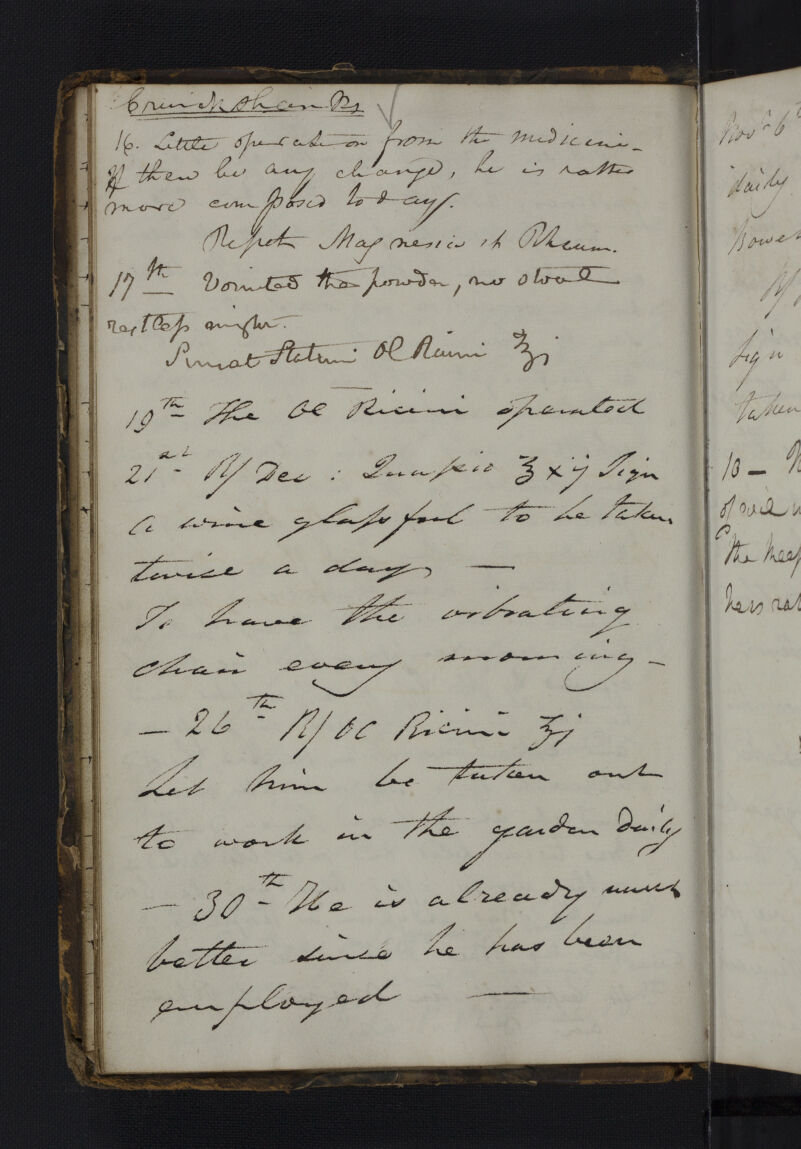 Cruickshanks
16. Little operation from the medicine -
If there be any change, he is rather
more composed today.
Repet Magnesia et Rheum.
17th Vomited the powder, no stool
restless night.
Sumat Statim Ol Ricini ℥j
19th The Ol Ricini operated
21st R/ Dec : Quassia ℥xij Sign
a wine glass full to be taken
twice a day —
To have the vibrating
chair every morning -
- 26th R/ Ol Ricini ℥j
Let him be taken out
to work in the garden daily
- 30th He is already much
better since he has been
employed —
Novr 6th
daily
Bowe
R/
Sign
taken
10 -
of
the
has